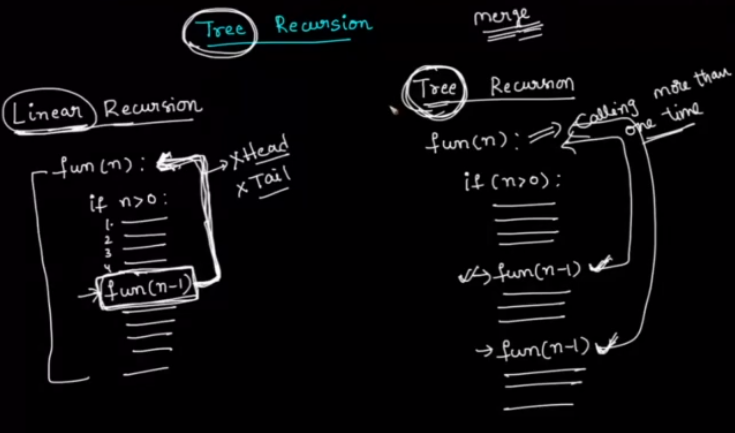 Tree Recursion
merge
Linear Recursion
fun(n):
xHead
x Tail
if n>0:
1.
2
3
4
fun(n-1)
Tree Recursion
Calling more than
one time
fun(n):
if (n>0):
fun(n-1)
fun(n-1)